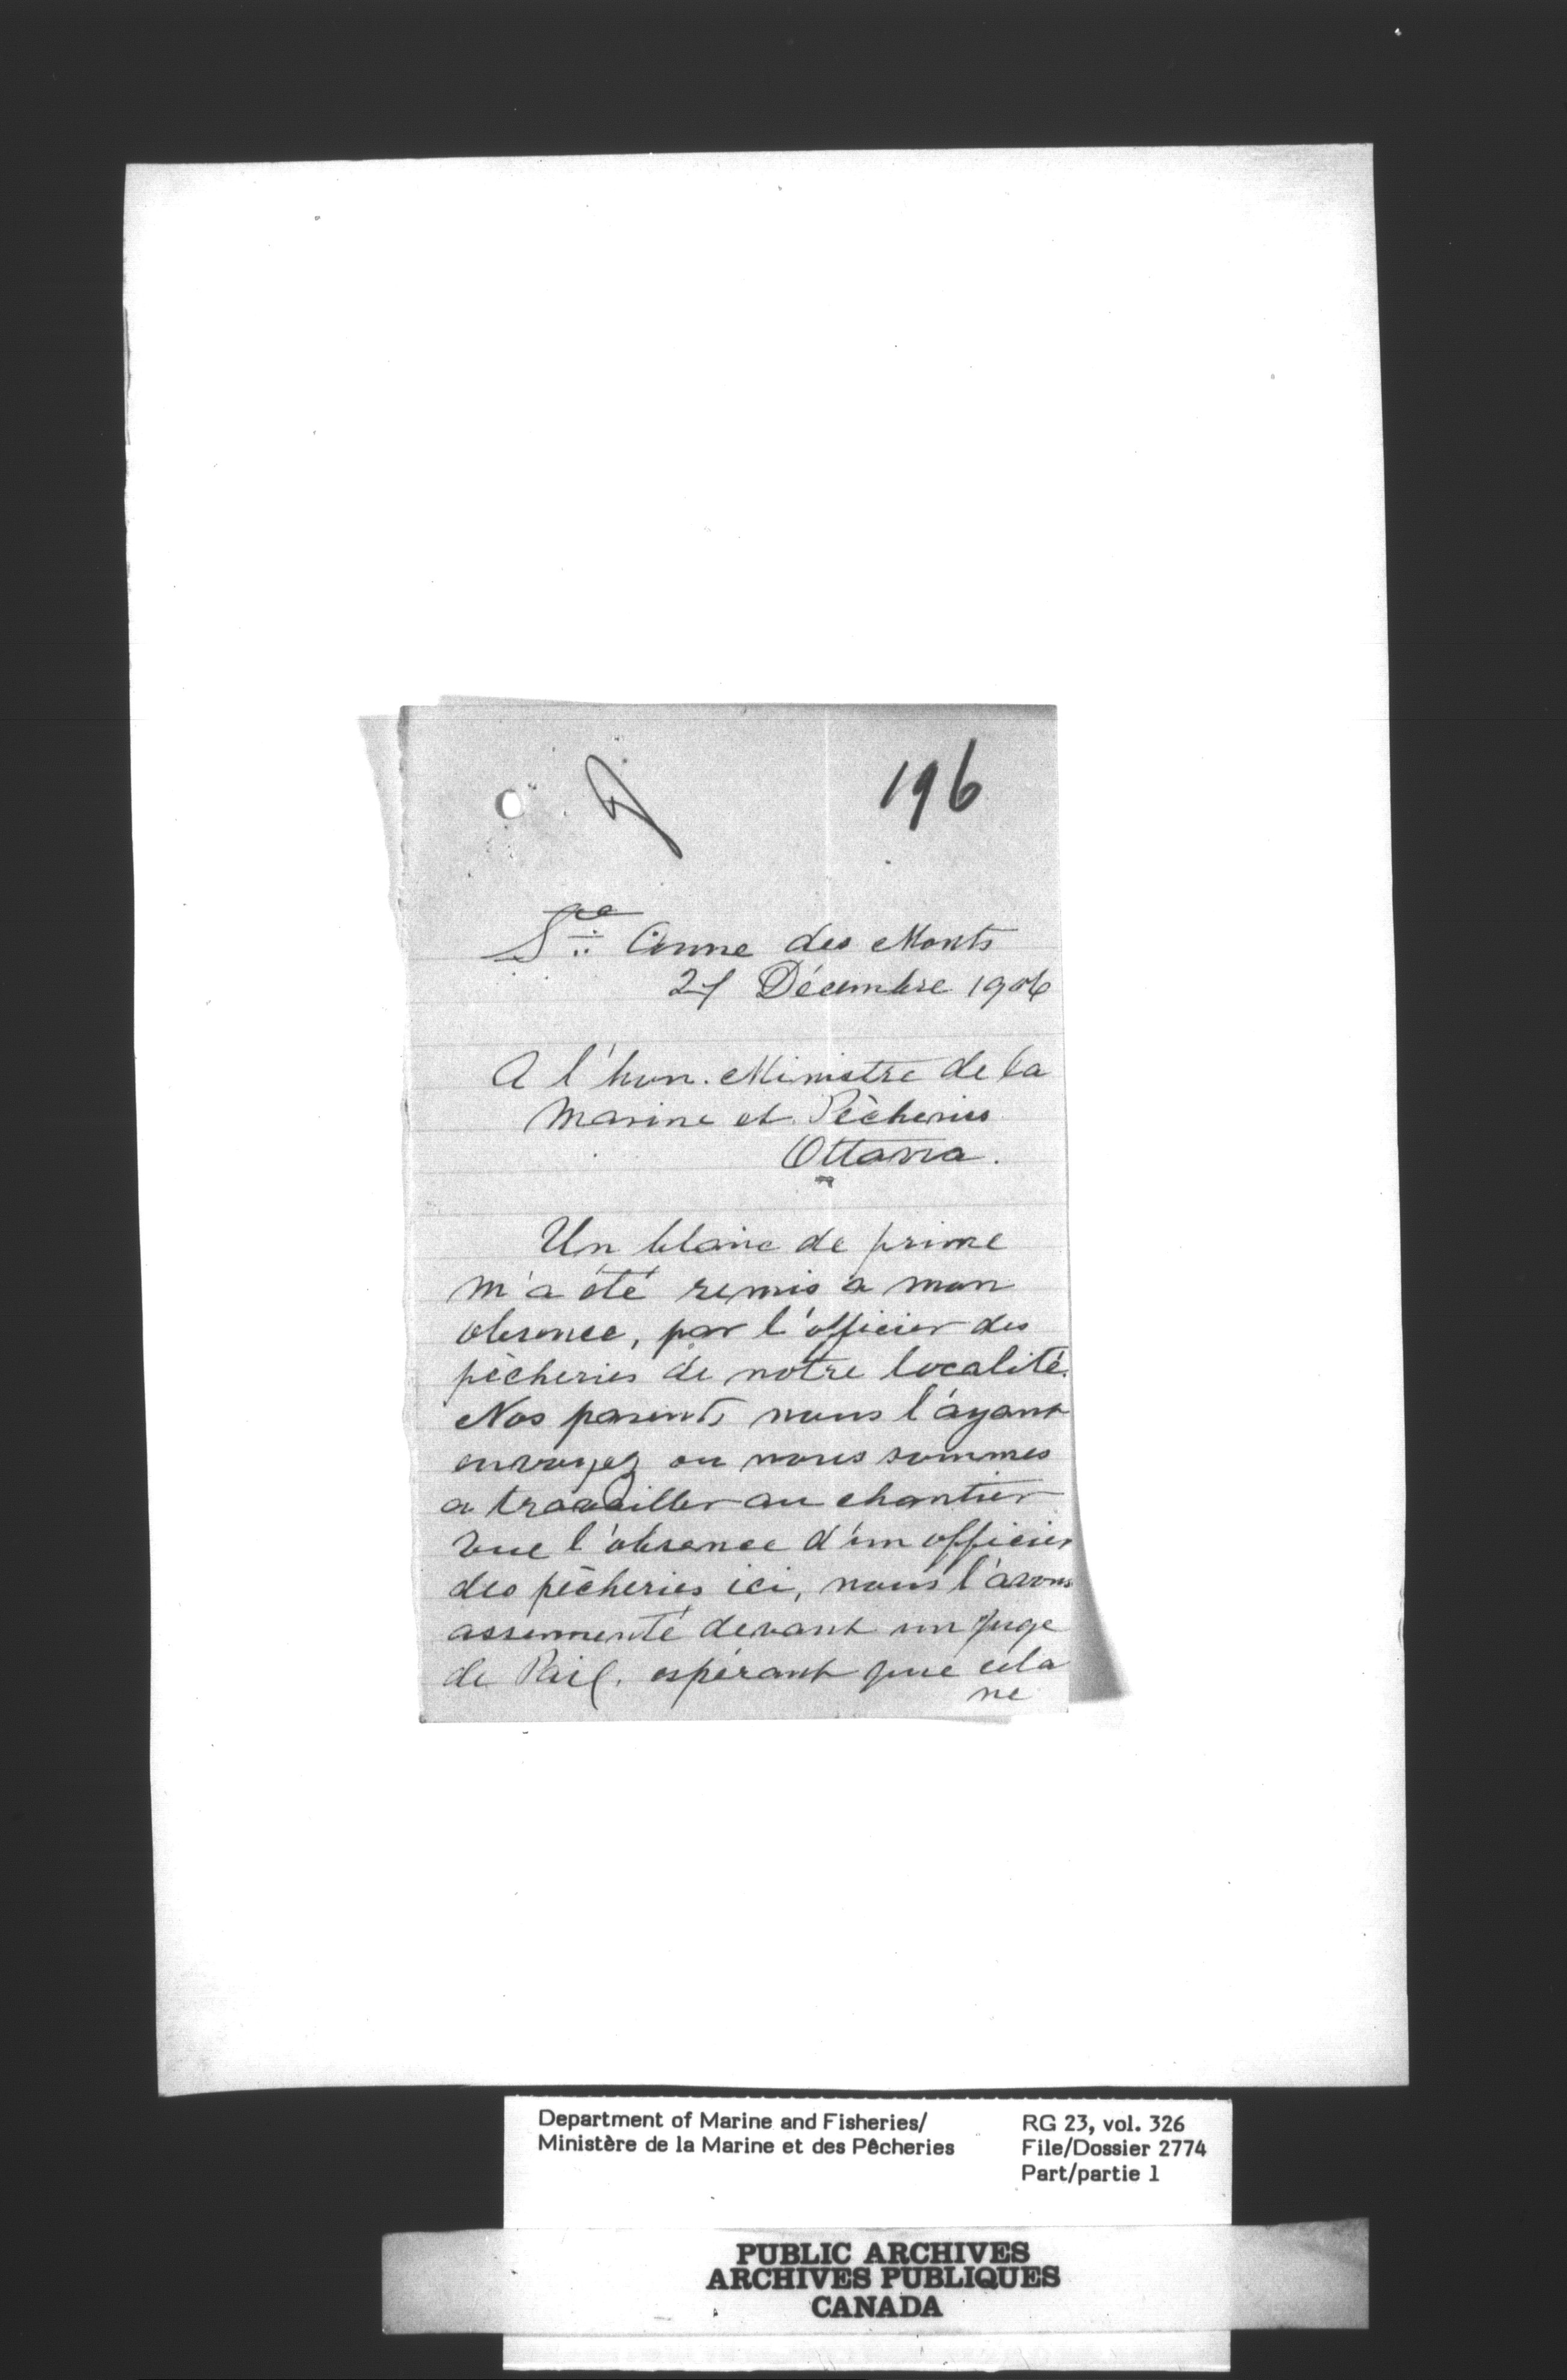 196
Ste Anne des Monts
27 Décembre 1906
A l'hon. Ministre de la
Marine et Pêcheries
Ottawa.
Un blanc de prime
m'a été remis a mon
absence, par l'officier des
pêcheries de notre localité.
Nos parents nous l'ayant
envoyez ou nous sommes
a travailler au chantier
vue l'absence d'un officier
des pêcheries ici, nous l'avons
assermenté devant un juge
de Paix. espérant que cela
ne
Department of Marine and Fisheries/
Ministère de la Marine et des Pêcheries
RG 23, vol. 326
File/Dossier 2774
Part/partie 1
PUBLIC ARCHIVES
ARCHIVES PUBLIQUES
CANADA